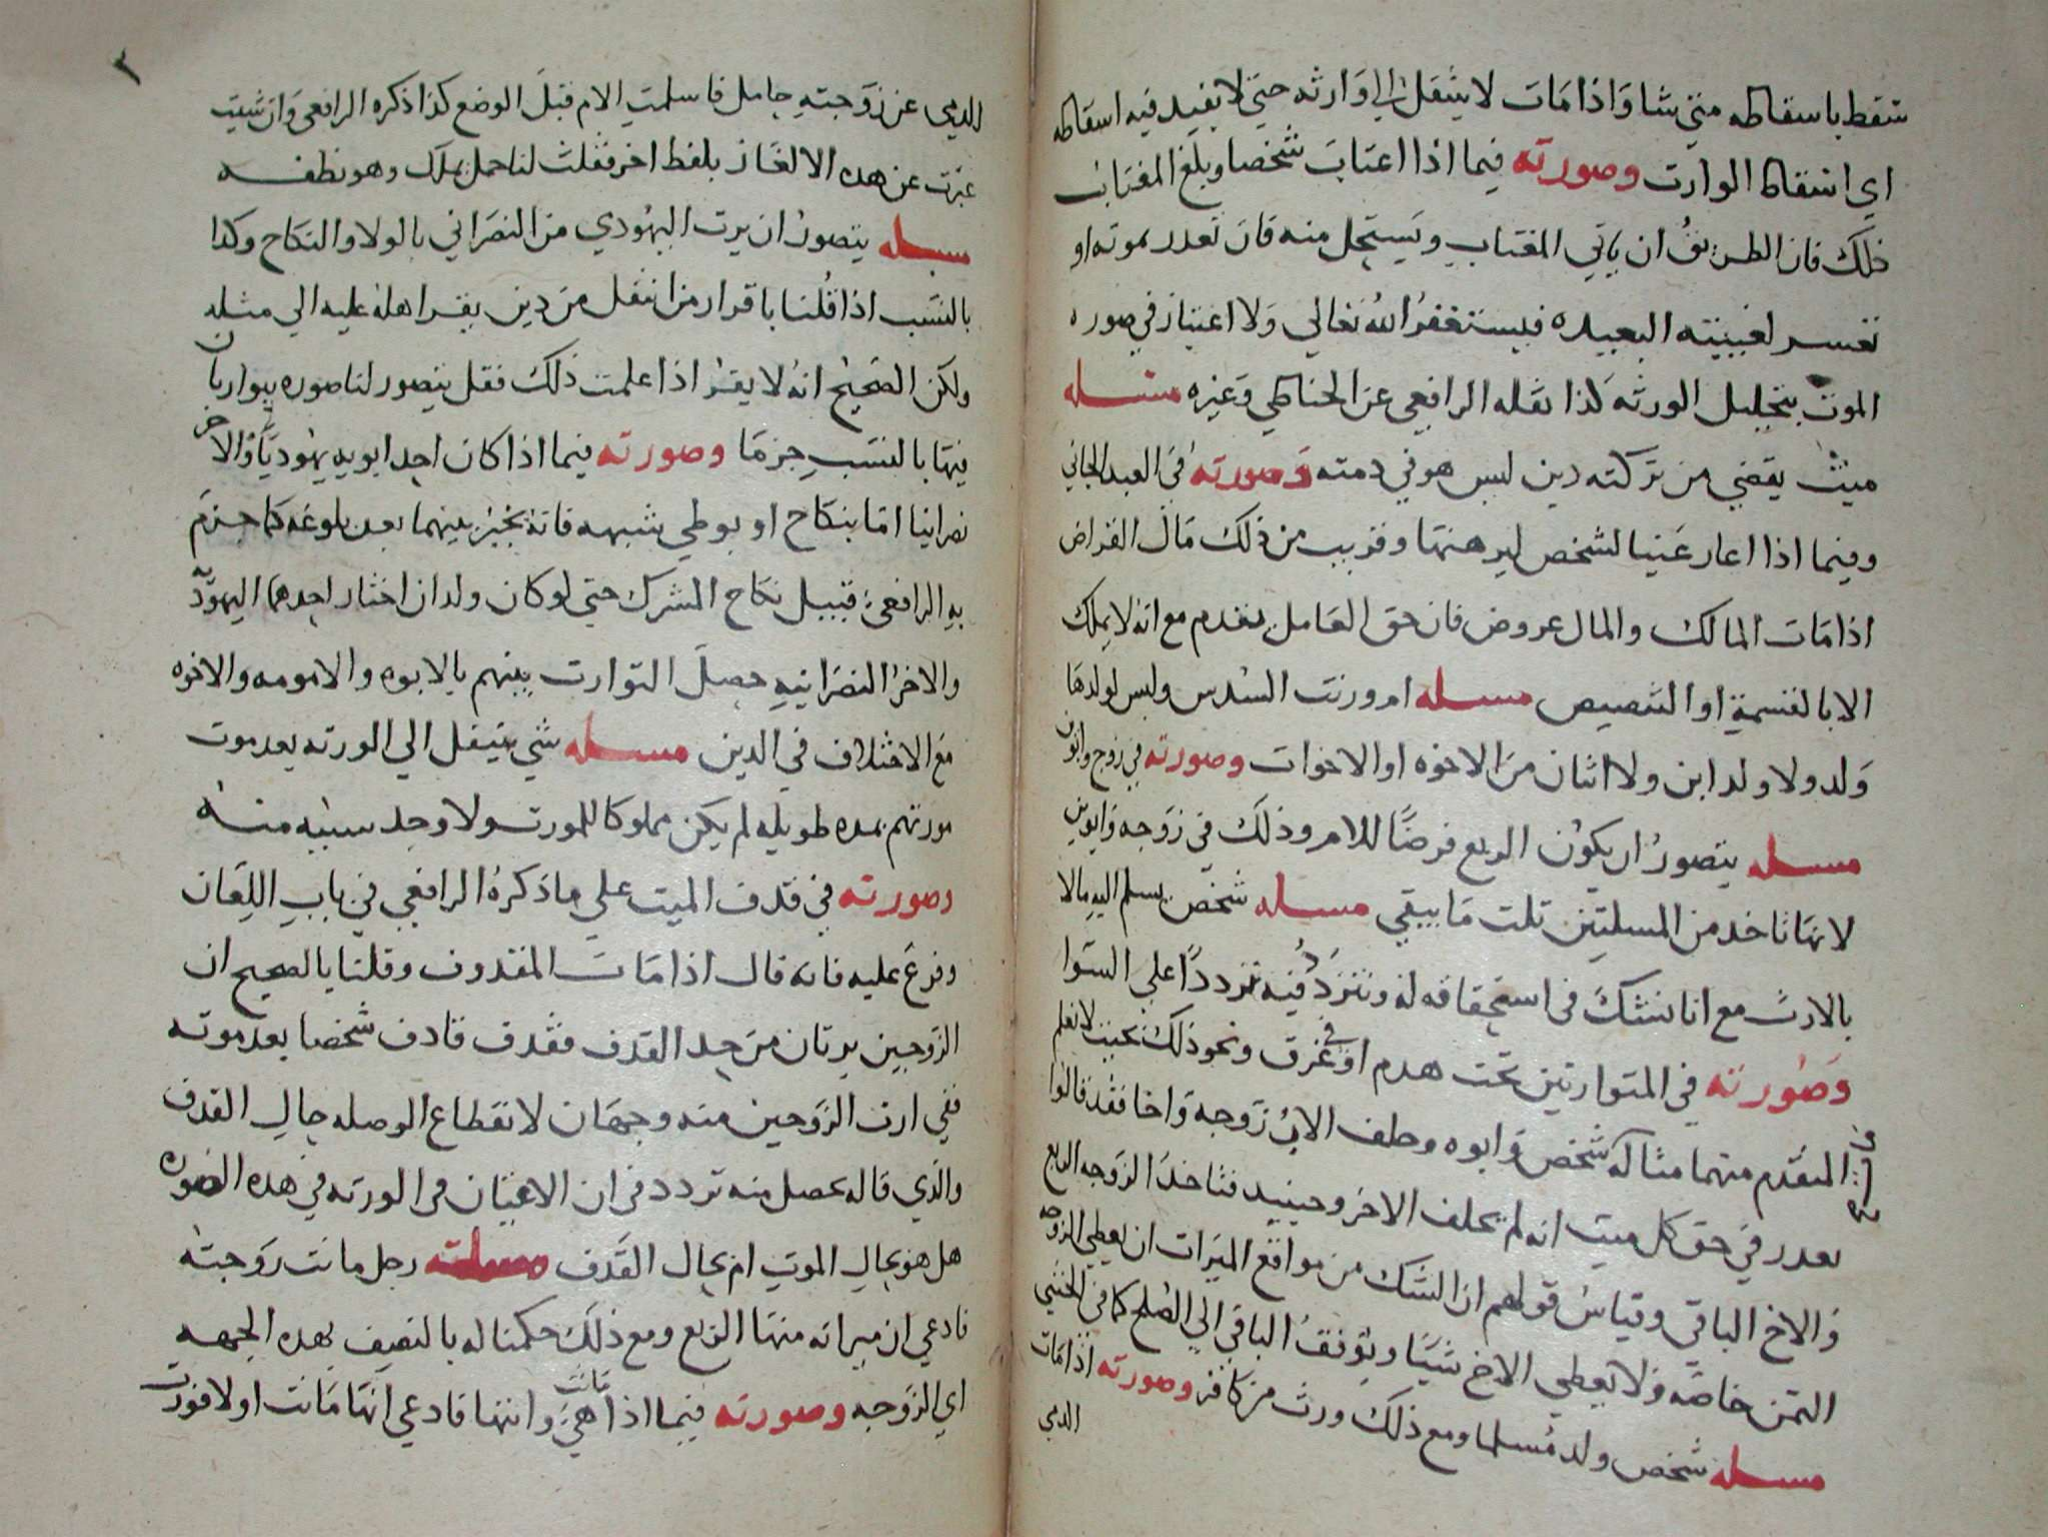 تسقط باسقاطه متي شا واذا مات لا ينتقل الي وارثه حتي لا يفيد فيه اسقاطه
اي اسقاط الوارث وصورته فيما اذا اغتاب شخصا وبلغ المغتاب
ذلك فان الطريق ان ياتي المغتاب ويستحل منه فان تعذر بموته او
تعسر لغيبته البعيده فيستغفر الله تعالي ولا اعتبار في صوره
الموت بتحليل الورثه كذا نقله الرافعي عن الحناطي وغيره مسله
ميت يقضي من تركته دين ليس هو في دمته وصورته في العبد الجاني
وفيما اذا اعار عينا لشخص ليرهنها وقريب من ذلك مال القراض
اذا مات المالك والمال عروض فان حق العامل يقدم مع انه لا يملك
الا بالقسمة او التنضيض مسله ام ورثت السدس وليس لولدها
ولد ولا ولد ابن ولا اثنان من الاخوه او الاخوات وصورته في زوج وابون
مسله يتصور ان يكون الربع فرضا للام وذلك في زوجه وابوين
لانها تاخد من المسلتين تلت ما يبقي مسله شخص يسلم اليه مالا
بالارث مع انا نشك في استحقاقه له ونتردد فيه ترددا علي السوا
وصورته في المتوارثين تحت هدم او في غرق ونحو ذلك بحيث لا نعلم
المتقدم منهما مثاله شخص وابوه وخلف الاب زوجه واخا فقد قالوا
يقدر في حق كل ميت انه لم يخلف الاخر وحينيد فتاخذ الزوجه الربع
والاخ الباقي وقياس قولهم ان الشك من موانع الميراث ان يعطي الزوجه
الثمن خاصه ولا يعطي الاخ شيئا ويوقف الباقي الي الصلح كما في الخنثي
مسله شخص ولد مسلما ومع ذلك ورث من كافر وصورته اذا مات
الدمي
٢
الدمي عن زوجته حامل فاسلمت الام قبل الوضع كذا ذكره الرافعي وان شيت
عبرت عن هده الالغاز بلفظ اخر فقلت لنا حمل يملك وهو نطفه
مسله يتصور ان يرث اليهودي من النصراني بالولا والنكاح وكدا
بالنسب اذا قلنا باقرار من انتقل من دين يقر اهله عليه الي مثله
ولكن الصحيح انه لا يقر اذا علمت ذلك فقل يتصور لنا صوره يتوارثان
فيها بالنسب جزما وصورته فيما اذا كان احد ابويه يهوديا والاخر
نصرانيا اما بنكاح او بوطي شبهه فانه يخير بينهما بعد بلوغه كما جزم
به الرافعي قبيل نكاح المشرك حتي لو كان ولدان اختار احدهما اليهوديه
والاخر النصرانيه حصل التوارث بينهم بالابوه والامومه والاخوه
مع الاختلاف في الدين مسله شي ينتقل الي الورته بعد موت
مورثهم بمده طويله لم يكن مملوكا للمورث ولا وجد سببه منه
وصورته في قدف الميت علي ما ذكره الرافعي في باب اللعان
وفرع عليه فانه قال اذا مات المقدوف وقلنا بالصحيح ان
الزوجين يرثان من حد القدف فقدف قادف شخصا بعد موته
ففي ارث الزوجين منه وجهان لانقطاع الوصله حال القدف
والذي قاله يحصل منه تردد في ان الاعتبار في الورته في هده الصوره
هل هو بحال الموت ام بحال القدف مسله رجل ماتت زوجته
فادعي ان ميراثه منها الربع ومع ذلك حكمنا له بالنصف بهده الجهه
اي الزوجه وصورته فيما اذا ماتت هي وابنها فادعي انها ماتت اولا فورث